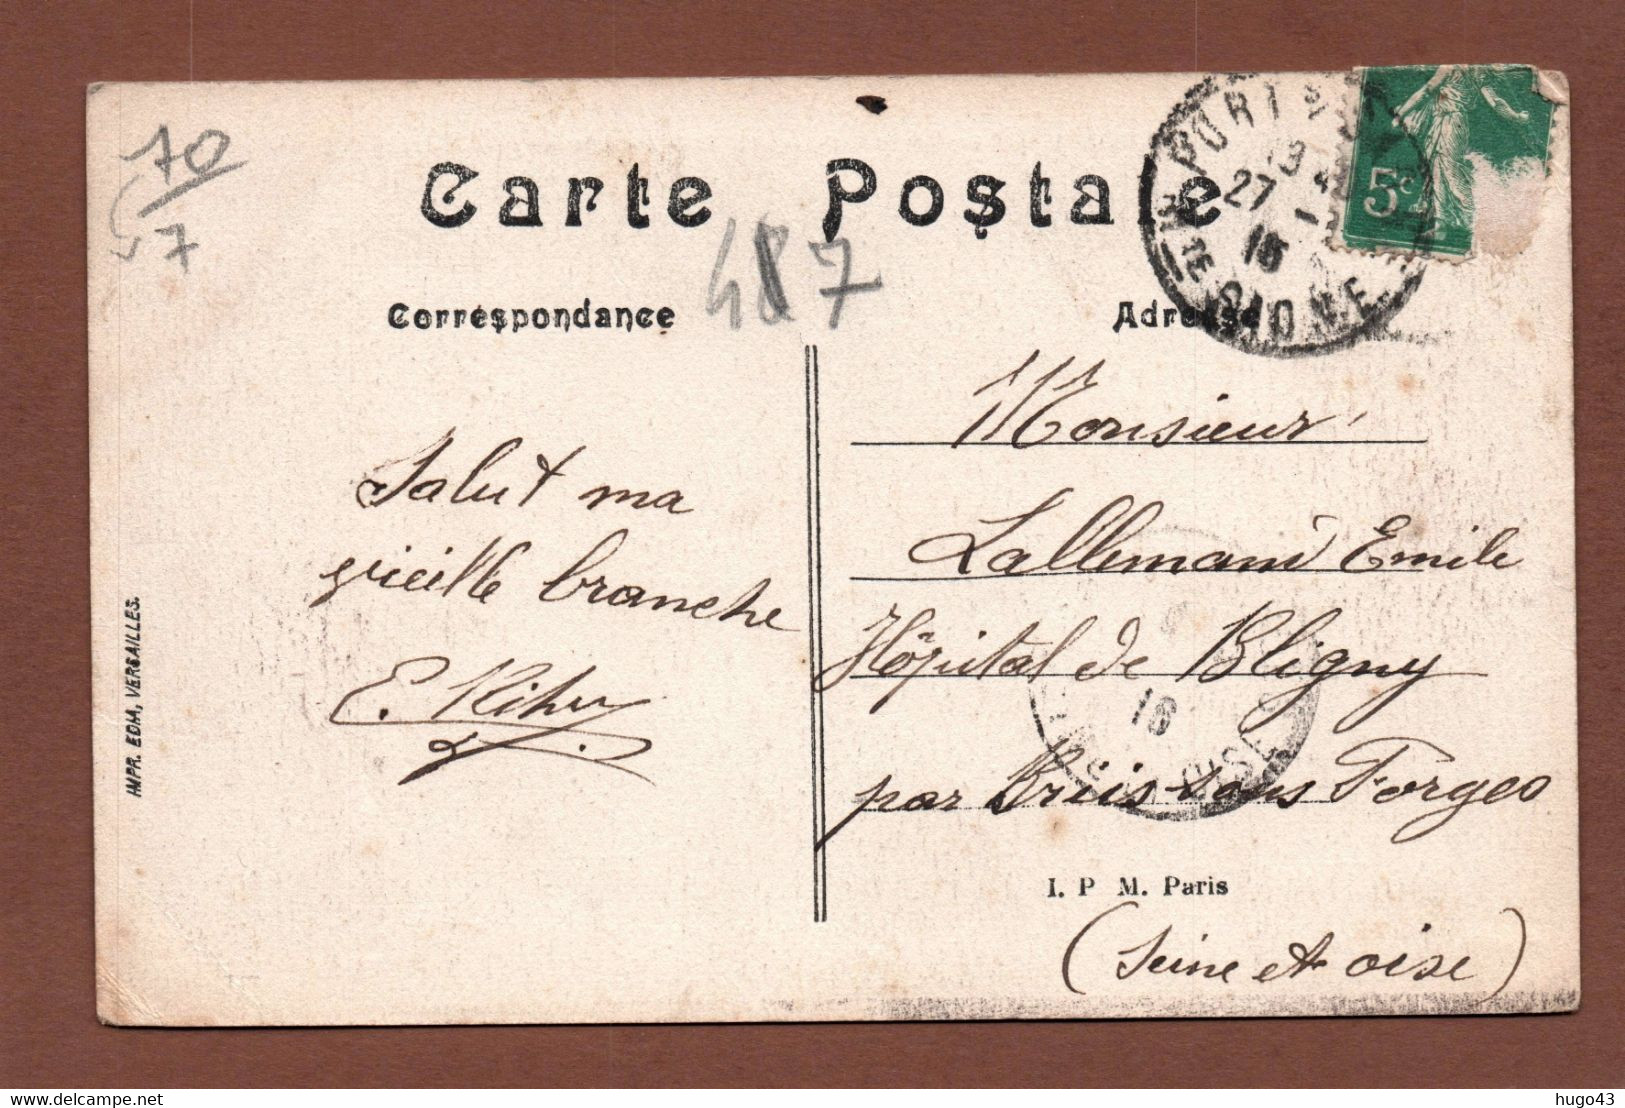 70
7
Carte Postale
487
Correspondance
Adresse
5c
27
16
Salut ma
vieille branche
Monsieur
Lallemand Emile
Hôpital de Bligny
par Briis-sous Forges
(Seine et oise)
16
I. P M. Paris
IMPR. EDIA, VERSAILLES.
delcampe.net
hugo43